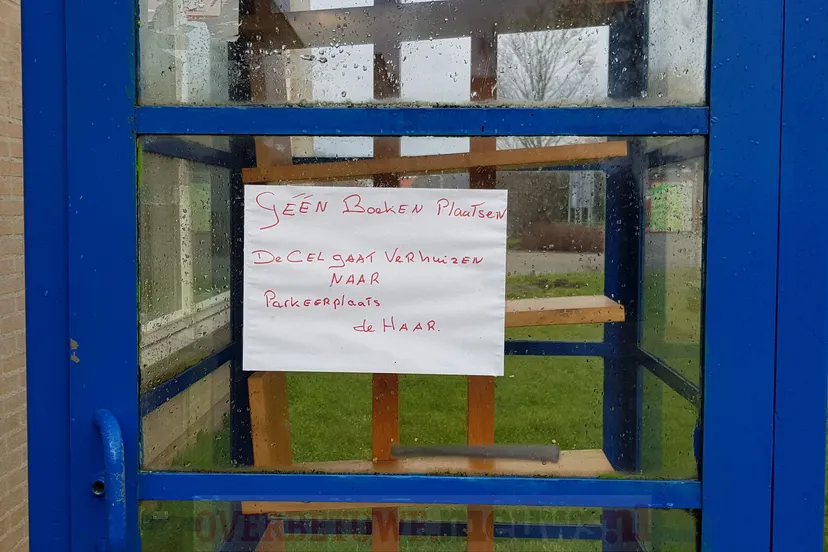 GÉÉN BOEKEN PlaatsEN
DE CEL gAAT VerhuizEN
NAAR
PARKEERPlaats
de HAAR.
OVERBETUWE.nieuws.nl